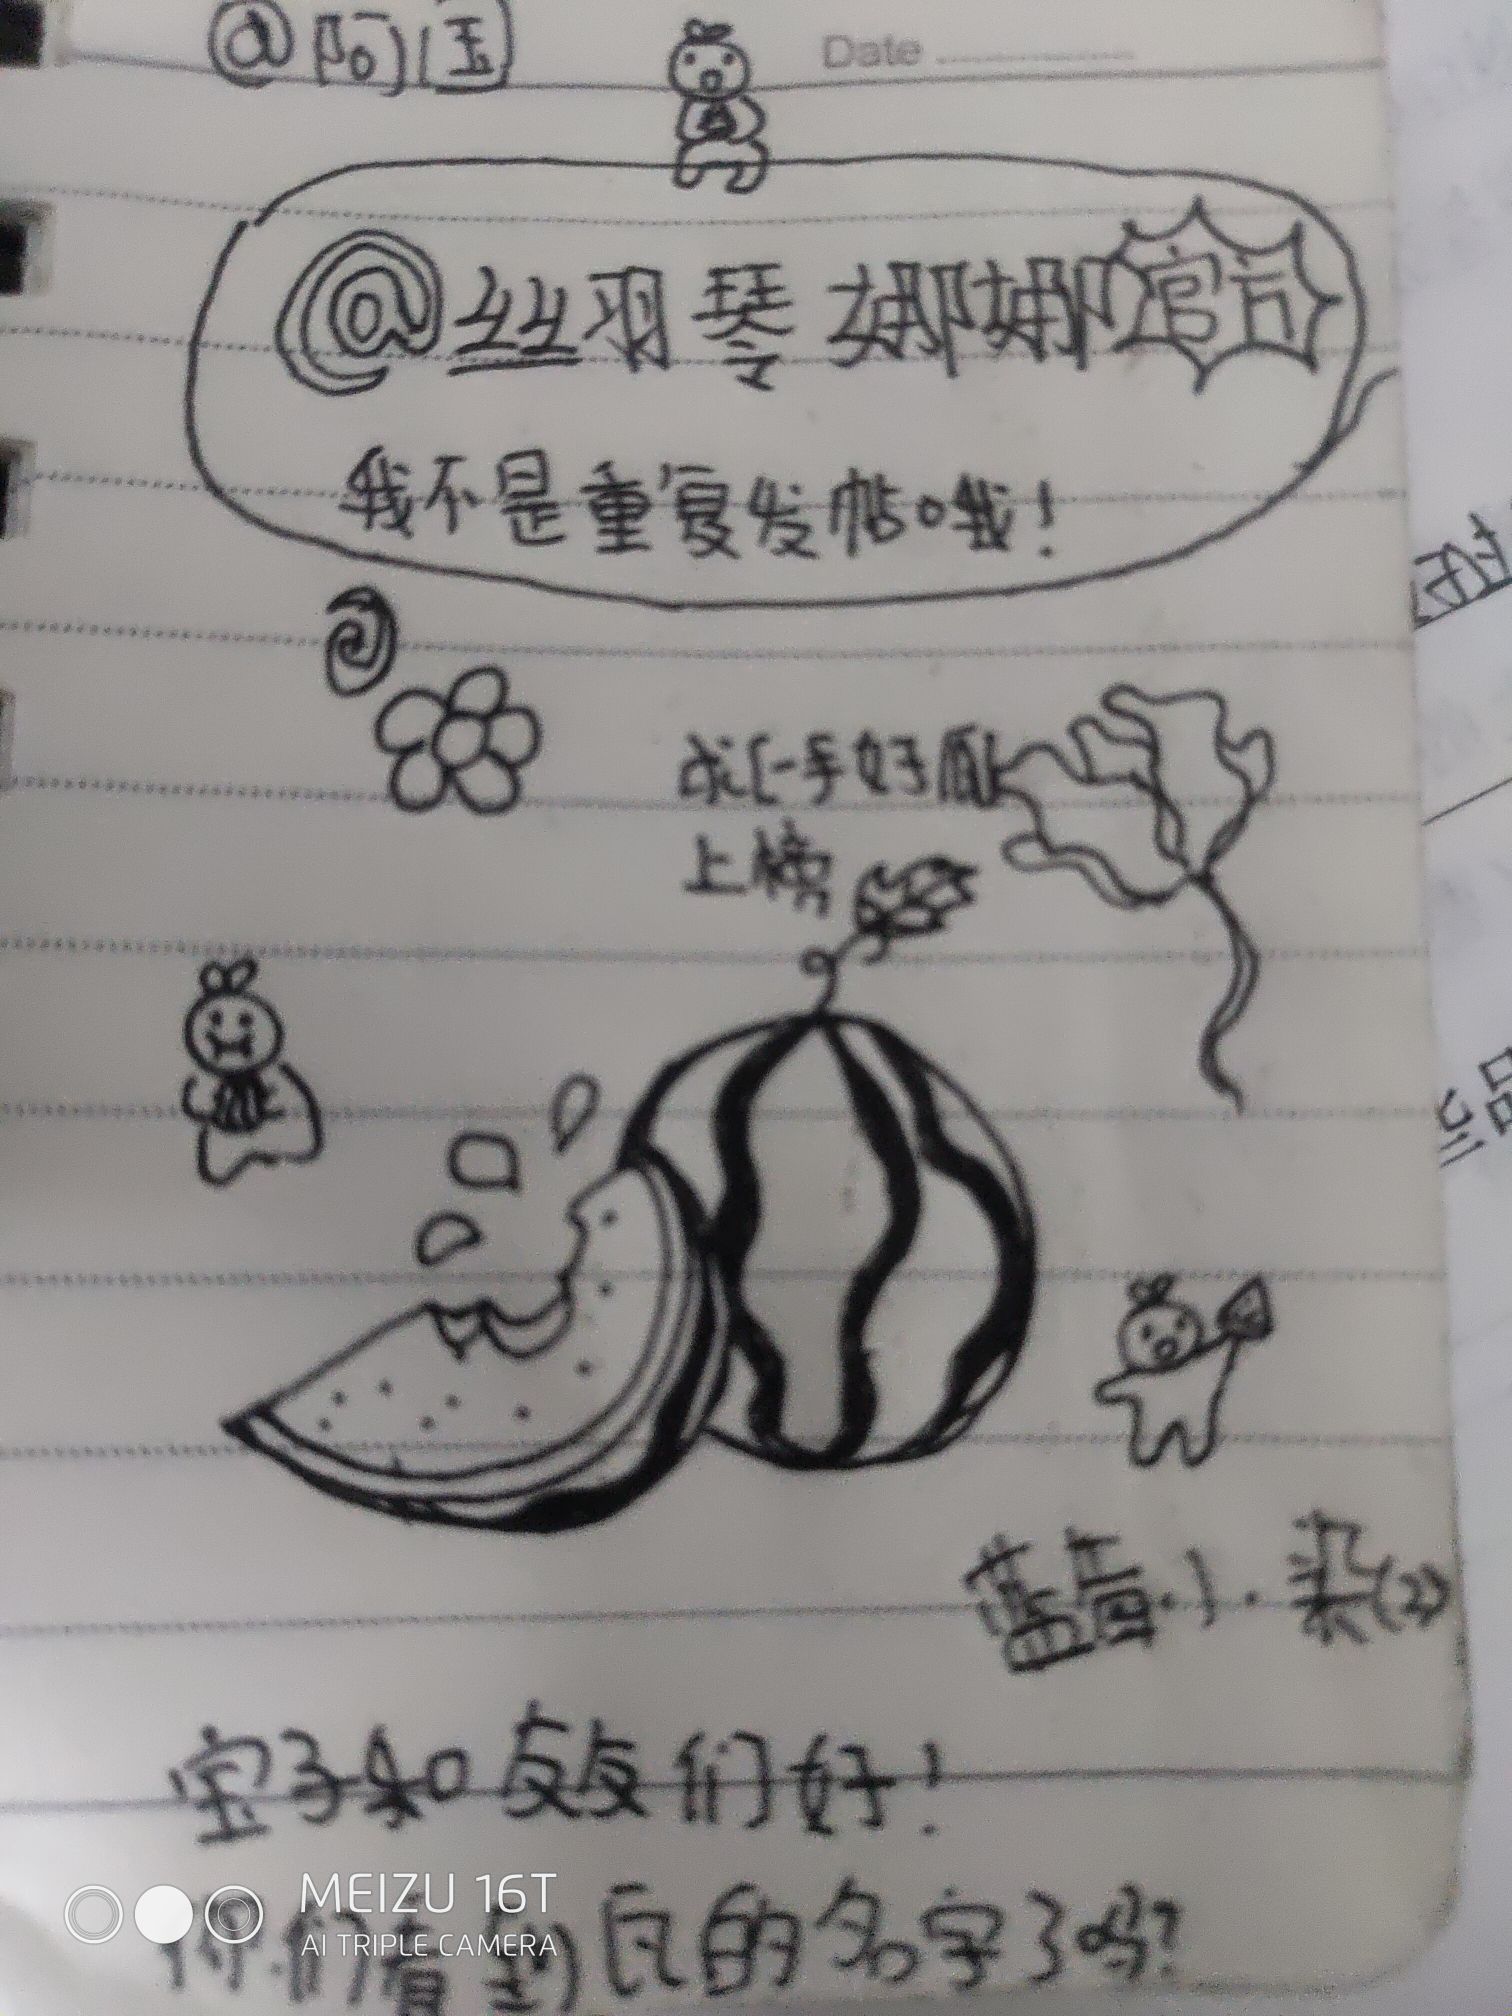 @阿国
Date
@丝羽琴娜娜官司
我不是重复发帖哦!
@
一手好瓜
上榜
蓝音小染(2)
宝子和友友们好!
你们看到瓦的名字了吗?
MEIZU 16T
AI TRIPLE CAMERA